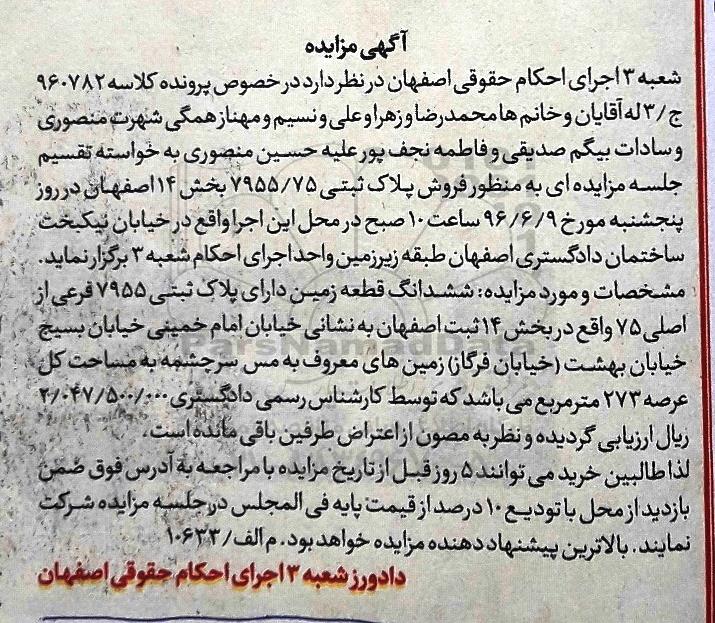 آگهی مزایده
شعبه ۳ اجرای احکام حقوقی اصفهان در نظر دارد در خصوص پرونده کلاسه ۹۶۰۷۸۲
ج/۳ له آقایان و خانم ها محمدرضا و زهرا و علی و نسیم و مهناز همگی شهرت منصوری
و سادات بیگم صدیقی و فاطمه نجف پور علیه حسین منصوری به خواسته تقسیم
جلسه مزایده ای به منظور فروش پلاک ثبتی ۷۹۵۵/۷۵ بخش ۱۴ اصفهان در روز
پنجشنبه مورخ ۹۶/۶/۹ ساعت ۱۰ صبح در محل این اجرا واقع در خیابان نیکبخت
ساختمان دادگستری اصفهان طبقه زیرزمین واحد اجرای احکام شعبه ۳ برگزار نماید.
مشخصات و مورد مزایده: ششدانگ قطعه زمین دارای پلاک ثبتی ۷۹۵۵ فرعی از
اصلی ۷۵ واقع در بخش ۱۴ ثبت اصفهان به نشانی خیابان امام خمینی خیابان بسیج
خیابان بهشت (خیابان فرگاز) زمین های معروف به مس سرچشمه به مساحت کل
عرصه ۲۷۳ مترمربع می باشد که توسط کارشناس رسمی دادگستری ۲/۰۴۷/۵۰۰/۰۰۰
ریال ارزیابی گردیده و نظربه مصون از اعتراض طرفین باقی مانده است.
لذا طالبین خرید می توانند ۵ روز قبل از تاریخ مزایده با مراجعه به آدرس فوق ضمن
بازدید از محل با تودیع ۱۰ درصد از قیمت پایه فی المجلس در جلسه مزایده شرکت
نمایند. بالاترین پیشنهاد دهنده مزایده خواهد بود. م الف/۱۰۶۳۳
دادورز شعبه ۳ اجرای احکام حقوقی اصفهان
ParsNamadData